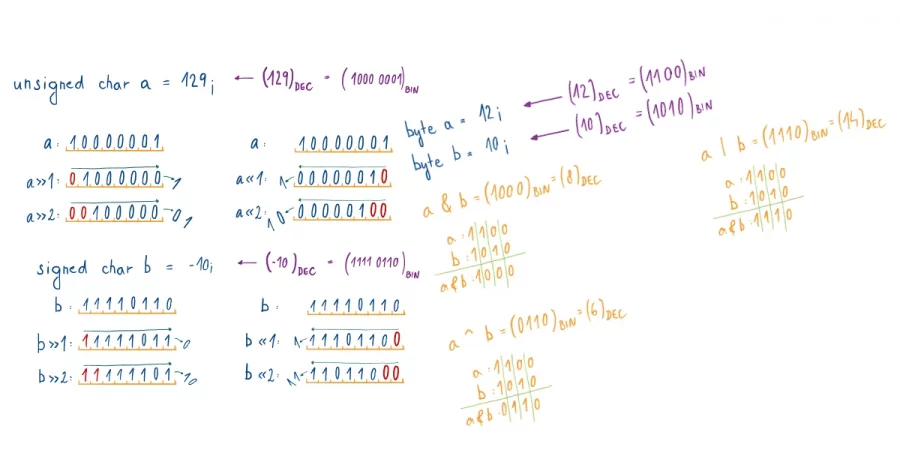 unsigned char a = 129; ← (129)DEC = (1000 0001)BIN
a: 10000001
a»1: 01000000 → 1
a»2: 00100000 → 01
a: 10000001
a«1: 1 ← 00000010
a«2: 10 ← 00000100
signed char b = -10; ← (-10)DEC = (1111 0110)BIN
b: 11110110
b»1: 11111011 → 0
b»2: 11111101 → 10
b: 11110110
b«1: 1 ← 11101100
b«2: 11 ← 11011000
byte a = 12; ← (12)DEC = (1100)BIN
byte b = 10; ← (10)DEC = (1010)BIN
a & b = (1000)BIN = (8)DEC
a: 1100
b: 1010
a&b: 1000
a ^ b = (0110)BIN = (6)DEC
a: 1100
b: 1010
a&b: 0110
a | b = (1110)BIN = (14)DEC
a: 1100
b: 1010
a&b: 1110